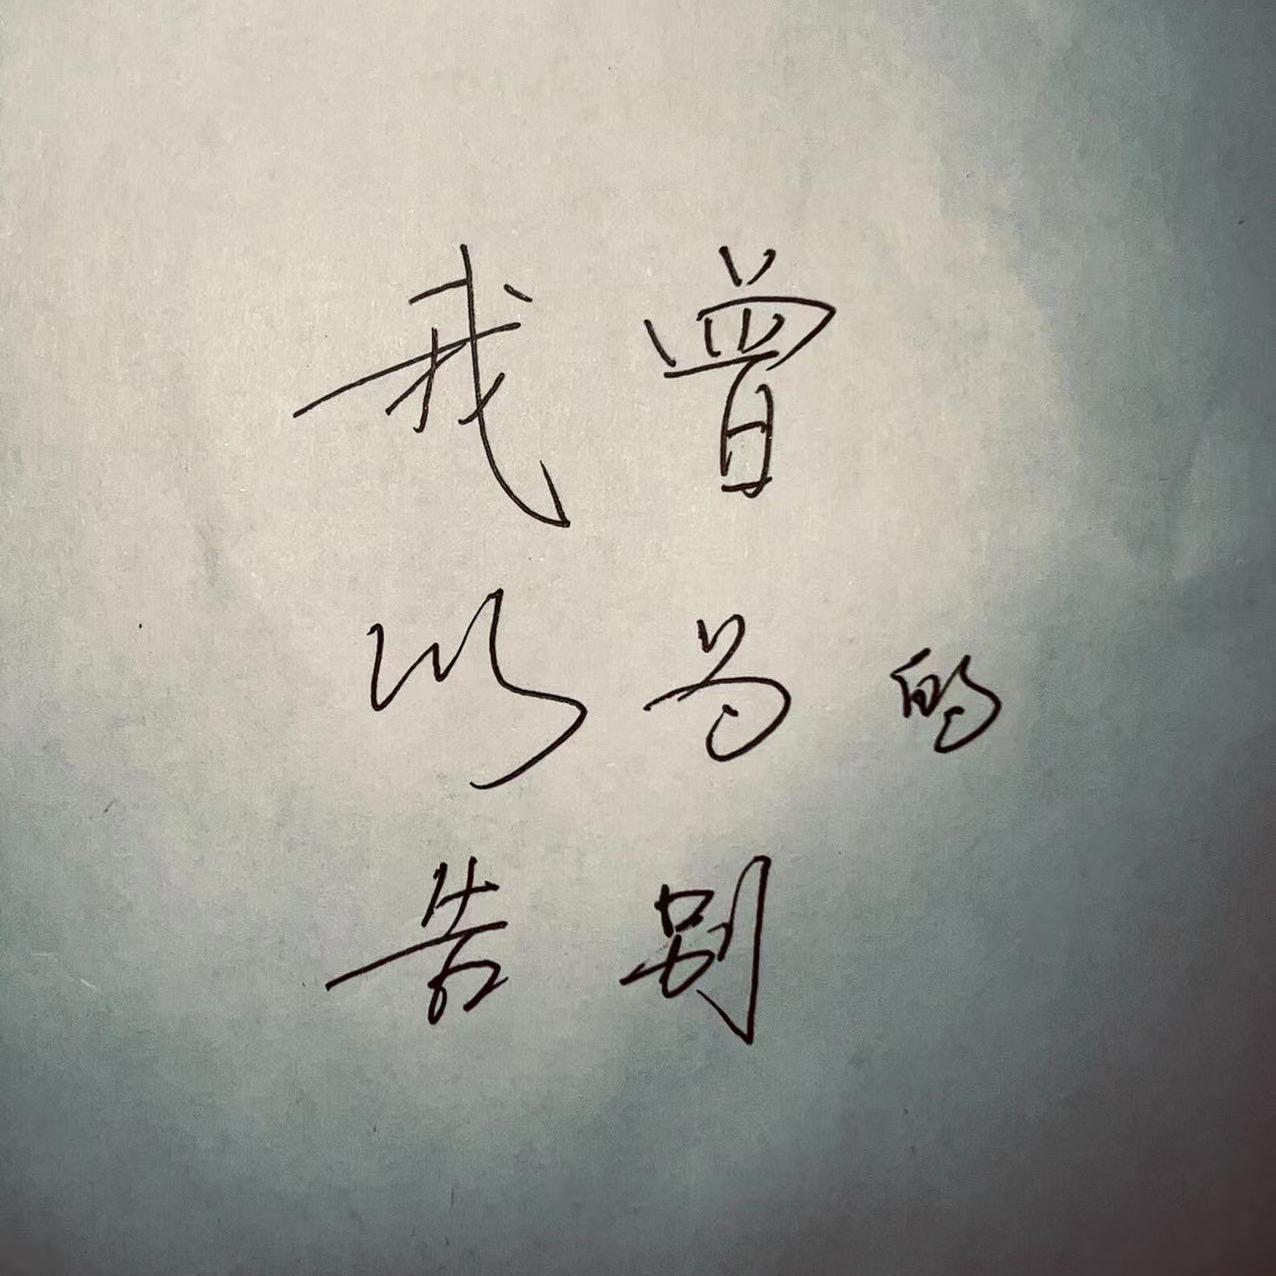 我曾
以为的
告别